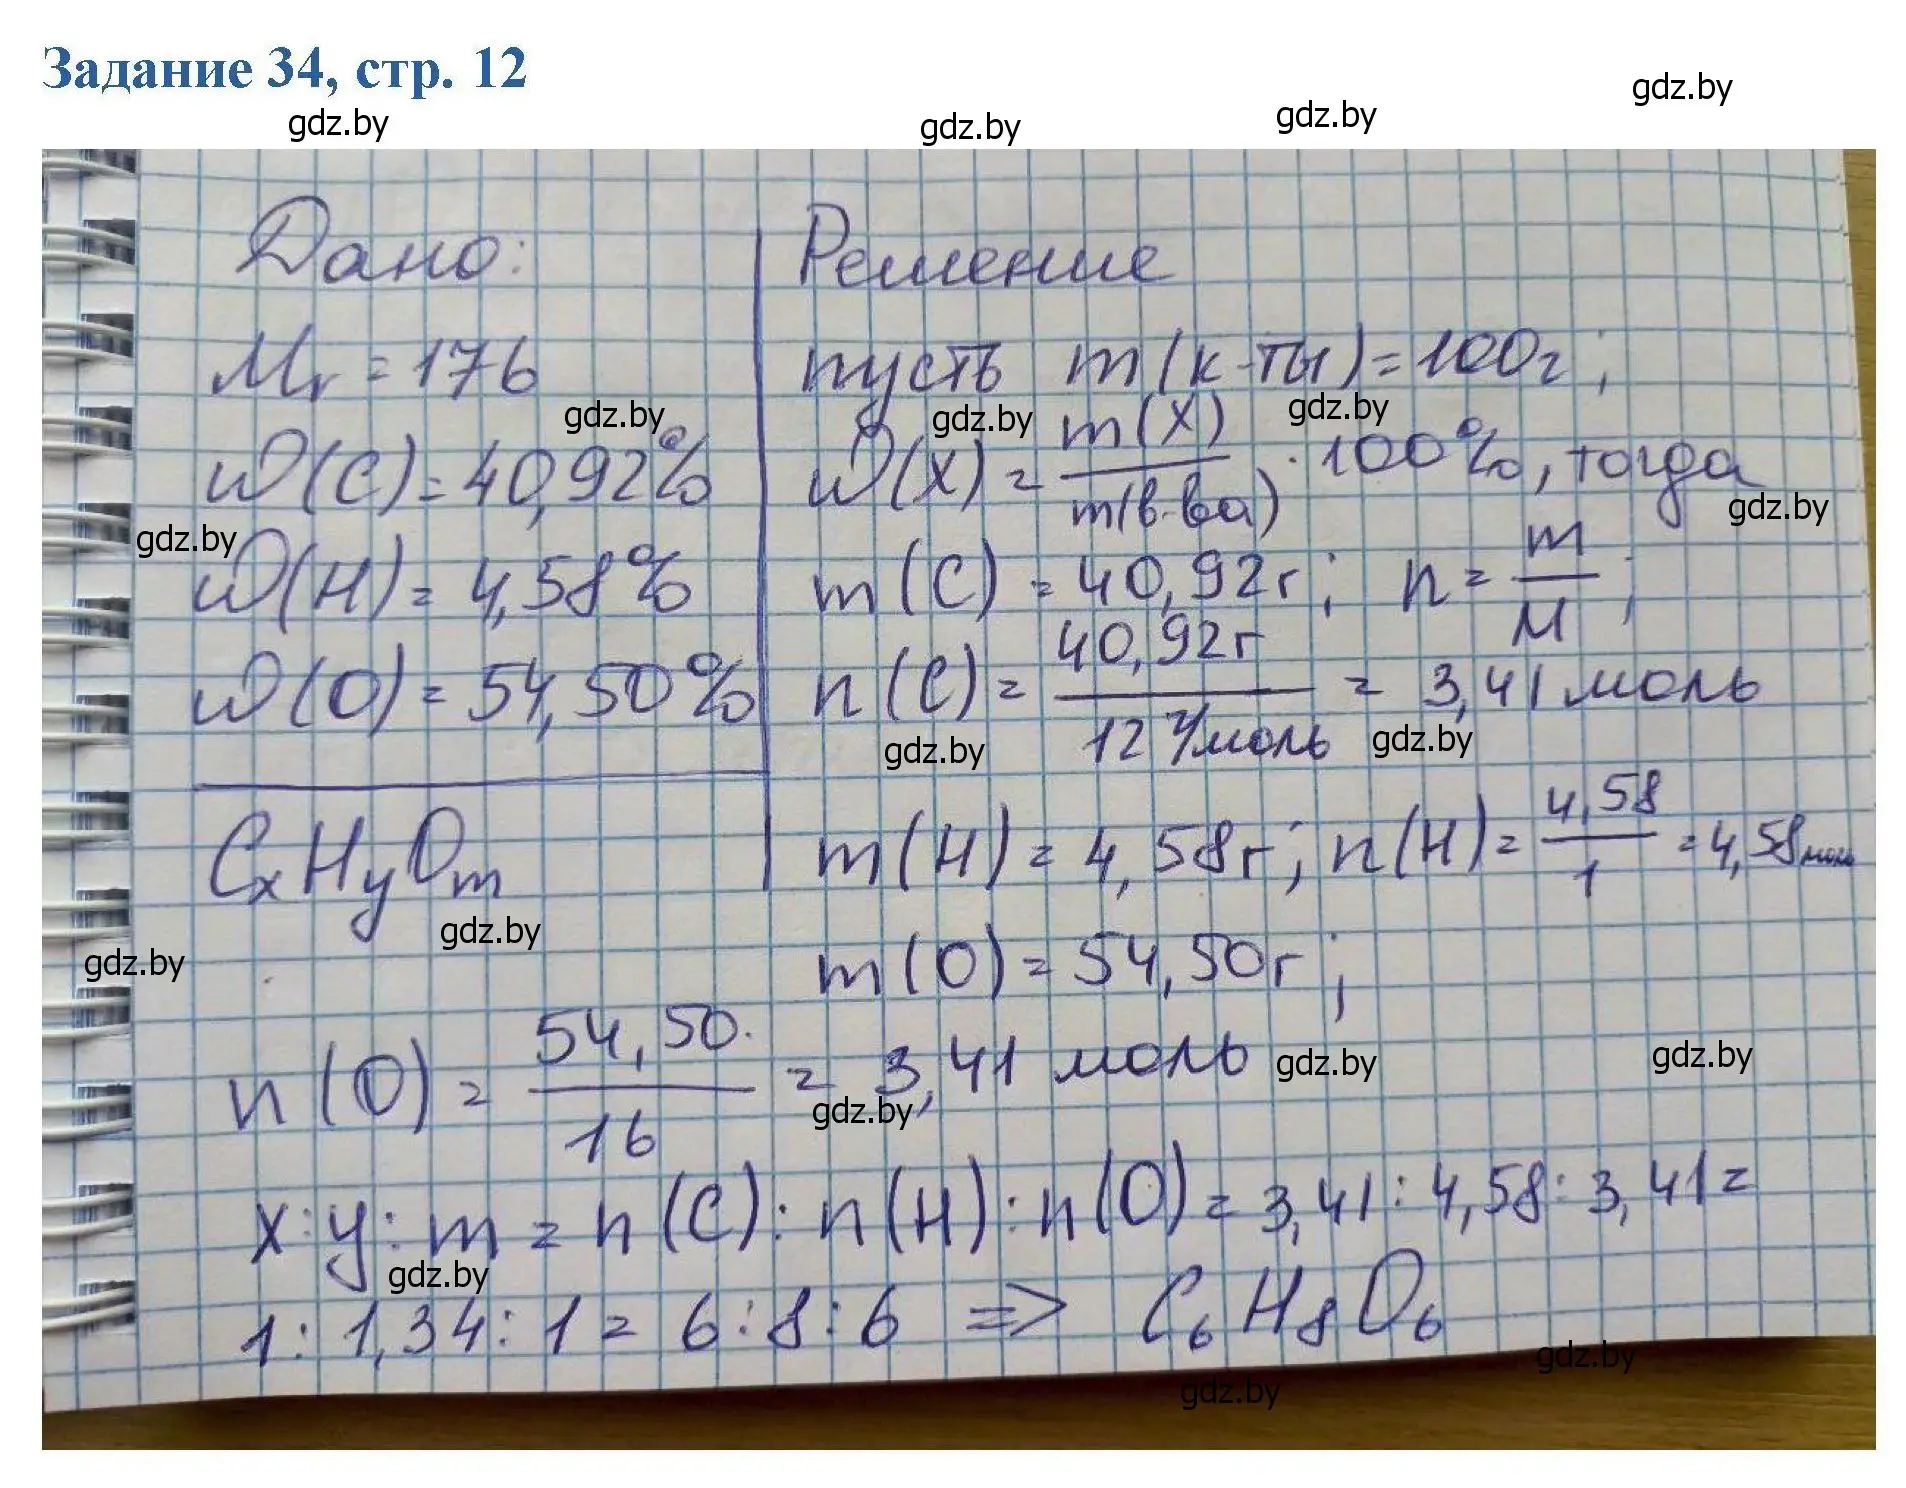 Задание 34, стр. 12
gdz.by
gdz.by
gdz.by
gdz.by
Дано:
Mr = 176
gdz.by
w(C) = 40,92%
gdz.by
w(H) = 4,58%
w(O) = 54,50%
CxHyOm
gdz.by
gdz.by
Решение
пусть m(к-ты) = 100г;
gdz.by
gdz.by
w(X) = m(X)/m(в-ва) · 100%, тогда
gdz.by
m(C) = 40,92г; n = m/M;
n(C) = 40,92г/12 г/моль = 3,41 моль
gdz.by
gdz.by
m(H) = 4,58г; n(H) = 4,58/1 = 4,58моль
m(O) = 54,50г;
n(O) = 54,50/16 = 3,41 моль
gdz.by
gdz.by
gdz.by
x:y:m = n(C):n(H):n(O) = 3,41:4,58:3,41=
gdz.by
1:1,34:1 = 6:8:6 => C6H8O6
gdz.by
gdz.by